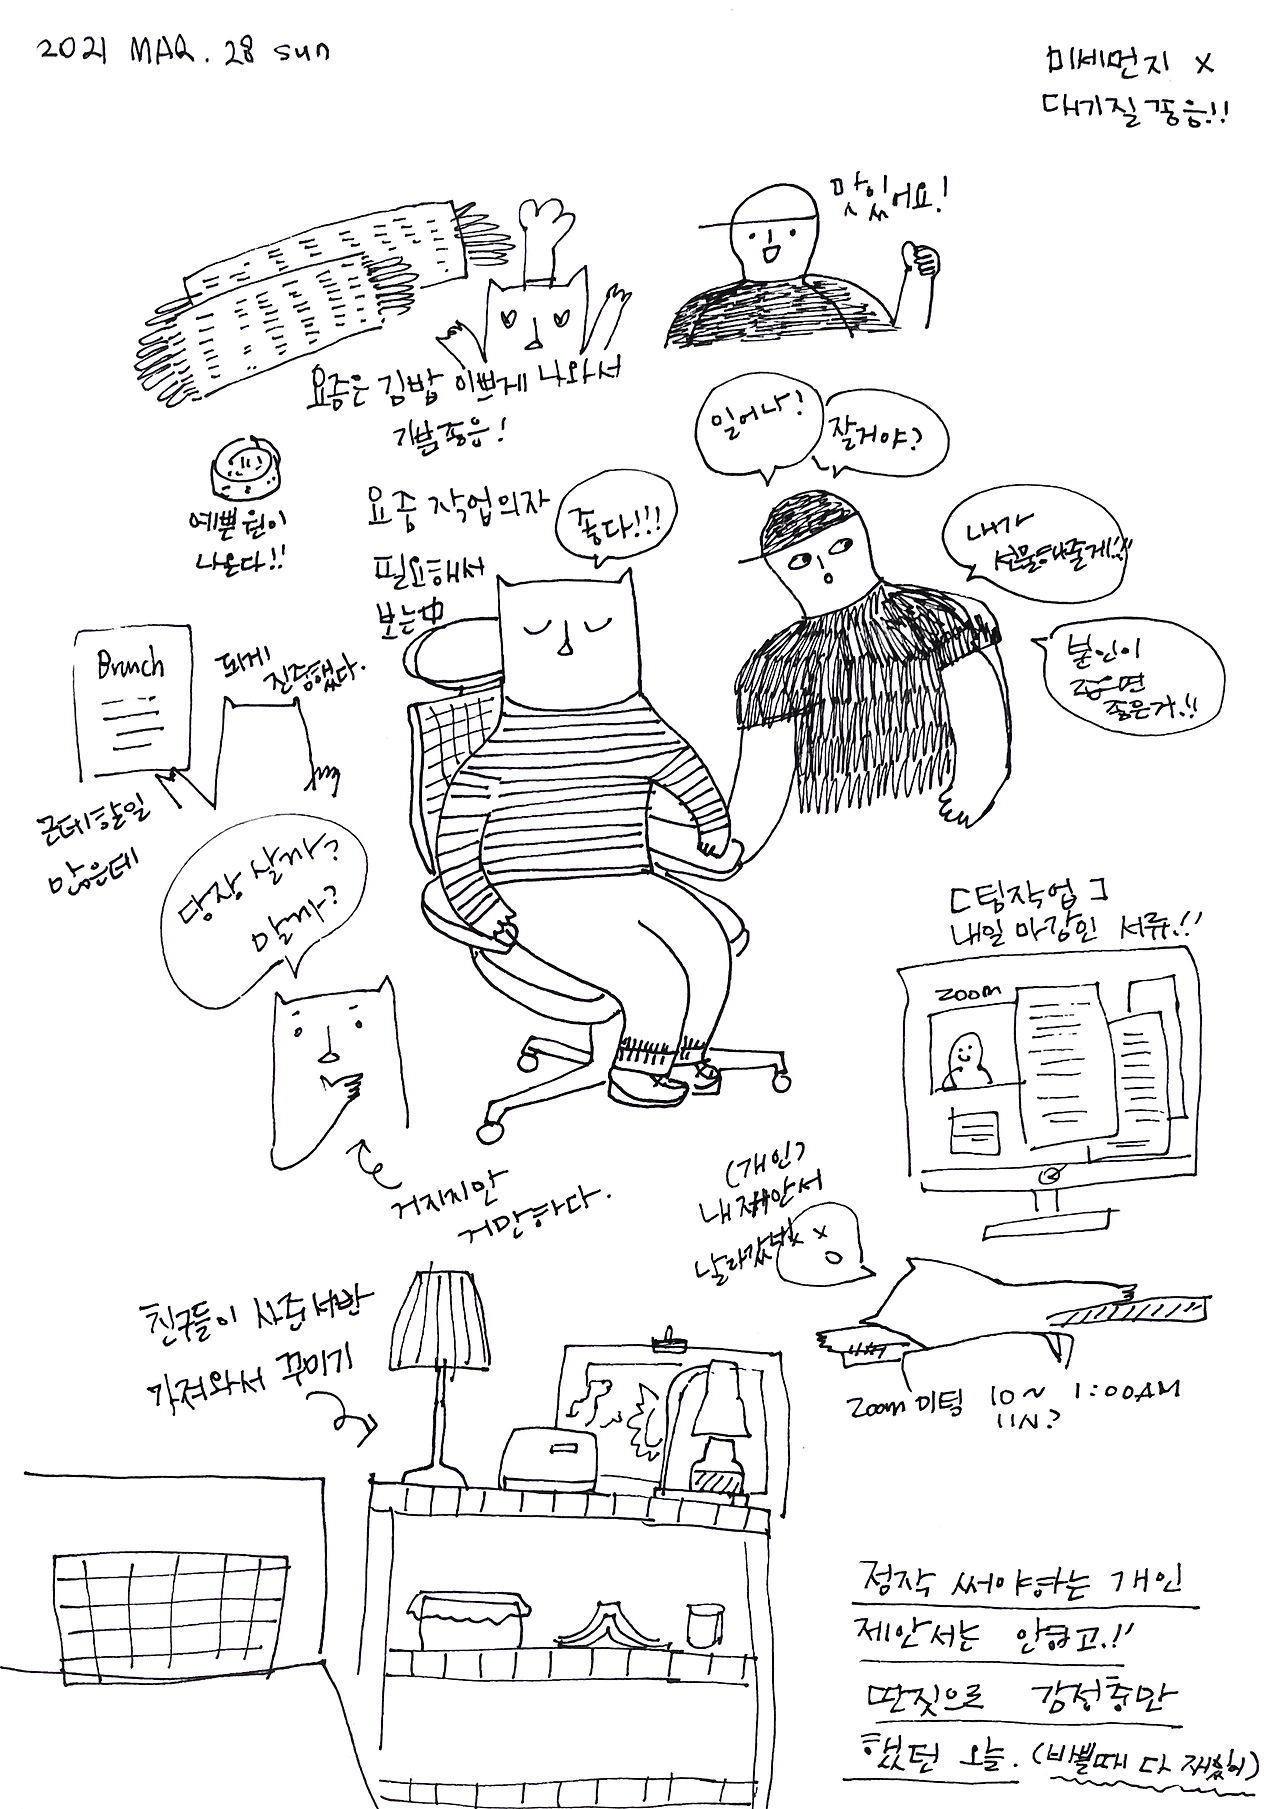 2021 MAR. 28 sun
미세먼지 x
대기질 좋음!!
맛있어요!
요즘은 김밥 이쁘게 나와서
기분좋음!
예쁜 원이
나온다!!
요즘 작업의자
필요해서
보는中
좋다!!!
일어나!
잘거야?
내가
선물해줄게!!
본인이
좋으면
좋은거!!
Brunch
되게
진중했다.
근데 할일
많은데
당장 살까?
말까?
거지지만
거만하다.
[팀작업]
내일 마감인 서류!!
zoom
(개인)
내 제안서
날라갔넹
zoom 미팅 10~ 1:00AM
11시?
친구들이 사준 선반
가져와서 꾸미기
정작 써야하는 개인
제안서는 안하고!!
딴짓으로 감정충만
했던 오늘. (바쁠때 다 재밌어)